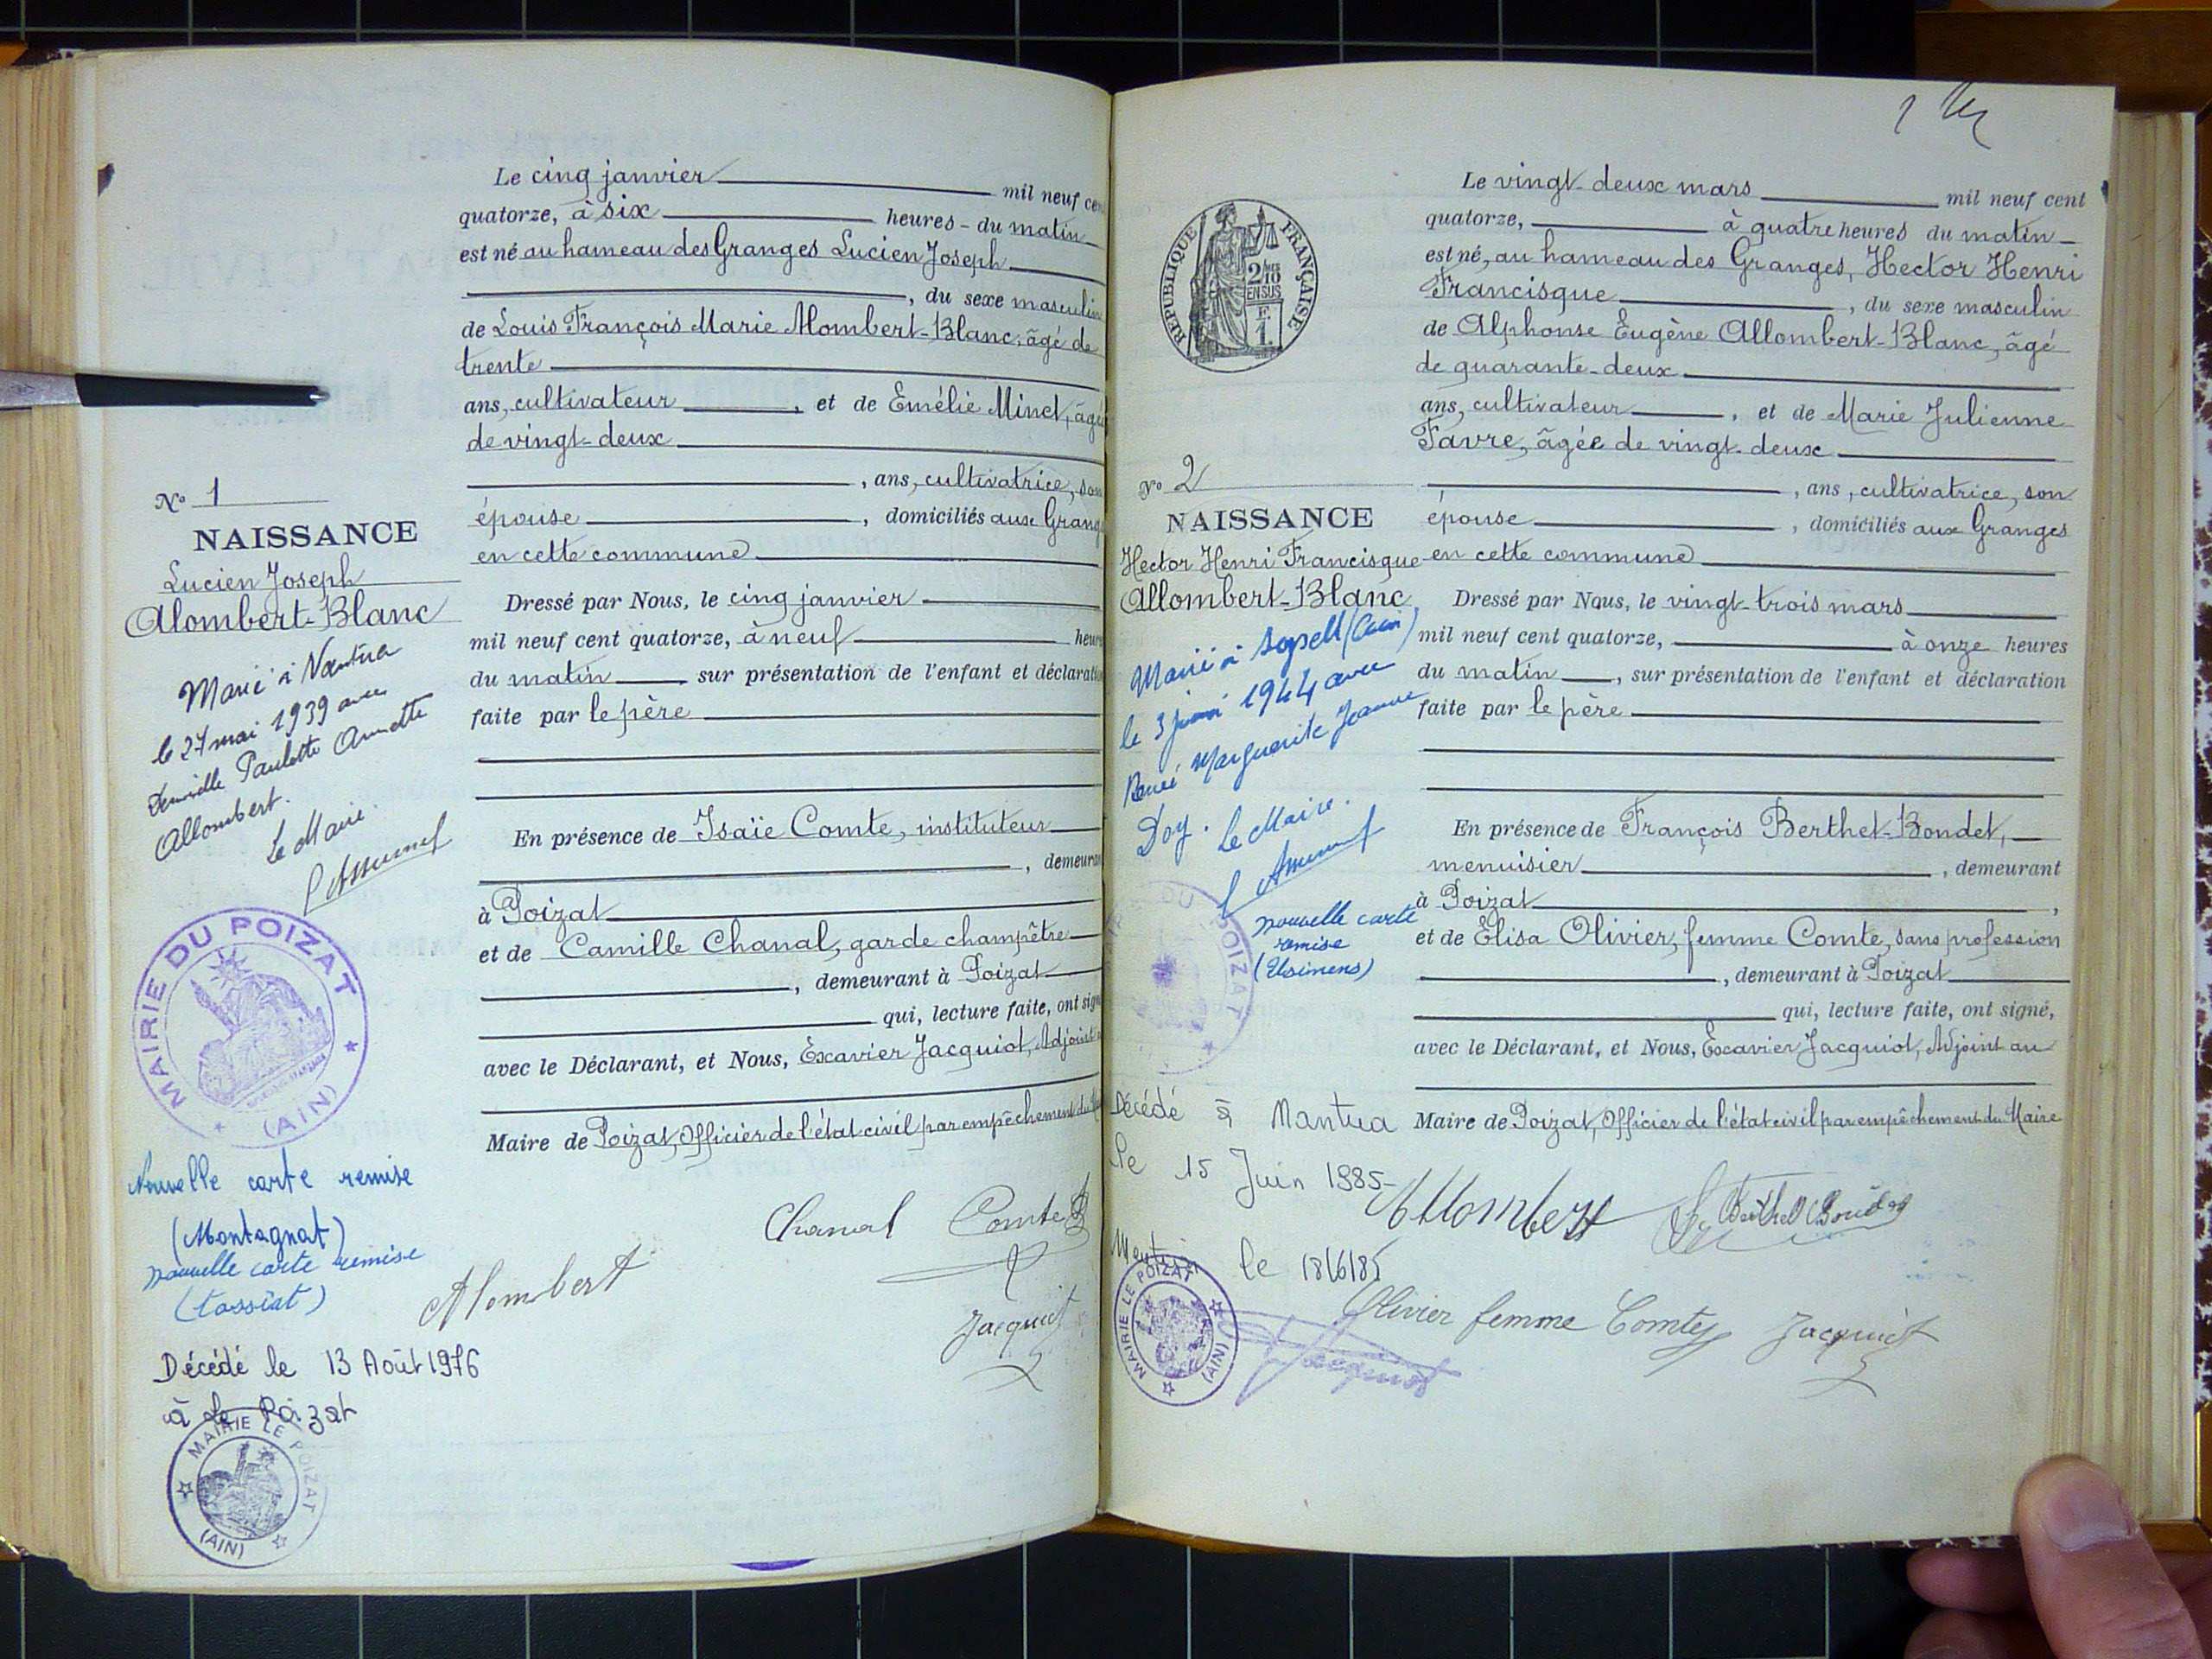 Le cinq janvier mil neuf cen
quatorze, à six heures - du matin
est né au hameau des Granges Lucien Joseph
, du sexe masculin
de Louis François Marie Alombert-Blanc, âgé de
trente
ans, cultivateur , et de Emélie Minet, âgée
de vingt-deux
, ans, cultivatrice, son
épouse , domiciliés aux Grang
en cette commune
Dressé par Nous, le cinq janvier
mil neuf cent quatorze, à neuf heur
du matin sur présentation de l'enfant et déclarati
faite par le père
En présence de Isaïe Comte, instituteur
, demeuran
à Poizat
et de Camille Chanal, garde champêtre
, demeurant à Poizat
qui, lecture faite, ont sign
avec le Déclarant, et Nous, Excavier Jacquiot, Adjoint
Maire de Poizat, Officier de l'état civil par empêchement du
Chanal Comte
Alombert
Jacquiot
No 1
NAISSANCE
Lucien Joseph
Alombert-Blanc
Marié à Nantua
le 27 mai 1939 avec
Paulette Annette
Allombert.
Le Maire
MAIRIE DU POIZAT
(AIN)
Nouvelle carte remise
(Montagnat)
nouvelle carte remise
(tassiat)
Décédé le 13 Août 1976
à Le Poizat
MAIRIE LE POIZAT
(AIN)
REPUBLIQUE FRANÇAISE
2/10
EN SUS
F.
1.
Le vingt-deux mars mil neuf cent
quatorze, à quatre heures du matin
est né, au hameau des Granges, Hector Henri
Francisque , du sexe masculin
de Alphonse Eugène Allombert-Blanc, âgé
de quarante-deux
ans, cultivateur , et de Marie Julienne
Favre, âgée de vingt-deux
, ans, cultivatrice, son
épouse , domiciliés aux Granges
en cette commune
Dressé par Nous, le vingt-trois mars
mil neuf cent quatorze, à onze heures
du matin , sur présentation de l'enfant et déclaration
faite par le père
En présence de François Berthet-Bondet,
menuisier , demeurant
à Poizat ,
et de Elisa Olivier, femme Comte, sans profession
, demeurant à Poizat
qui, lecture faite, ont signé,
avec le Déclarant, et Nous, Excavier Jacquiot, Adjoint au
Maire de Poizat, Officier de l'état civil par empêchement du Maire
Allombert Berthet Bondet
Olivier femme Comte Jacquiot
No 2
NAISSANCE
Hector Henri Francisque
Allombert-Blanc
Marié à
le 3 1944 avec
Renée Marguerite Jeanne
Doy. Le Maire.
DU POIZAT
nouvelle carte
remise
Décédé à Nantua
le 15 Juin 1985
le 18/6/85
MAIRIE LE POIZAT
(AIN)
Jacquiot